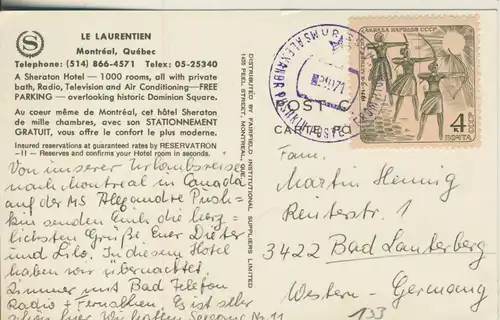 LE LAURENTIEN
Montréal, Québec
Telephone: (514) 866-4571 Telex: 05-25340
A Sheraton Hotel — 1000 rooms, all with private
bath, Radio, Television and Air Conditioning—FREE
PARKING — overlooking historic Dominion Square.
Au coeur même de Montréal, cet hôtel Sheraton
de mille chambres, avec son STATIONNEMENT
GRATUIT, vous offre le confort le plus moderne.
Insured reservations at guaranteed rates by RESERVATRON
II — Reserves and confirms your Hotel room in seconds.
Von unserer Urlaubsreise
nach Montreal in Canada
auf der MS Alexandre Push-
kin senden Euch die herz-
lichsten Grüße Euer Dieter
und Lilo. In diesem Hotel
haben wir übernachtet.
Zimmer mit Bad Telefon
Radio + Fernsehen. Es ist sehr
schön hier. Wir hatten Seegang Nr. 11
DISTRIBUTED BY FAIRFIELD INSTITUTIONAL SUPPLIERS LIMITED
1405 PEEL STREET, MONTREAL, QUE.
POST C
CARTE PO
MS ALEXANDR PUSHKIN
ДЕКАДА НАРОДОВ СССР
4 К
ПОЧТА СССР
Fam.
Martin Hennig
Reiterstr. 1
3422 Bad Lauterberg
Western-Germany
133